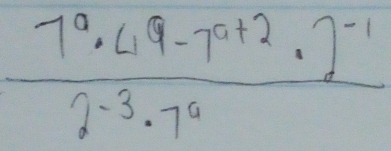 7^a · 49 - 7^{a+2} · 2^{-1}
2^{-3} · 7^a